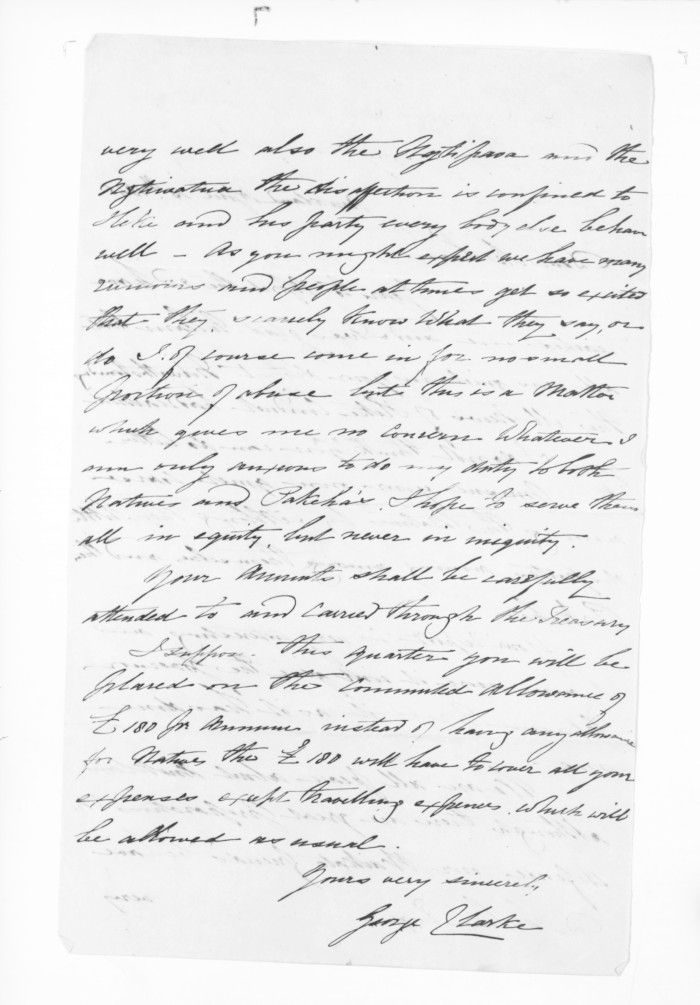 very well also the Ngtipaoa and the
Ngtiwatua the disaffection is confined to
Heke and his party every body else behave
well - As you might expect we have many
rumours and people at times get so excited
that they scarcely know what they say, or
do I. of course come in for no small
portion of abuse but this is a Matter
which gives me no concern whatever I
am only anxious to do my duty to both
Natives and Pakeha's. I hope to serve them
all in equity, but never in iniquity.
Your Accounts shall be carefully
attended to and carried through the Treasury
I suppose this quarter you will be
placed on the commuted allowance of
£180 pr Annum instead of having any allowance
for Natives the £180 will have to cover all your
expenses except travelling expenses which will
be allowed as usual.
Yours very sincerely
George Clarke